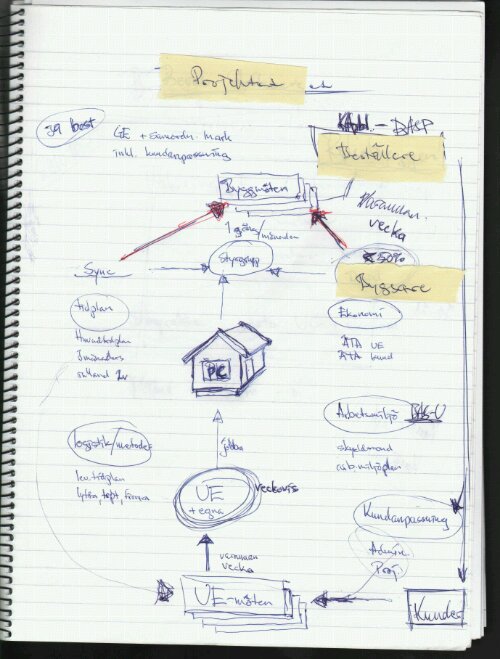 Projektad
GE + samordn. mark
inkl. kundanpassning
BASP
Beställare
Byggmöten
Varannan
vecka
1 gång/månaden
Styrgrupp
50%
Sync
Byggare
tidplan
Ekonomi
Huvudtidplan
3 månaders
ÄTA UE
ÄTA kund
PC
Arbetsmiljö BAS-U
logistik/metoder
jobba
skyddsrond
arb.miljöplan
lev. tidplan
UE
+ egna
veckovis
Kundanpassning
varannan
vecka
Admin
Proj.
UE-möten
Kunder